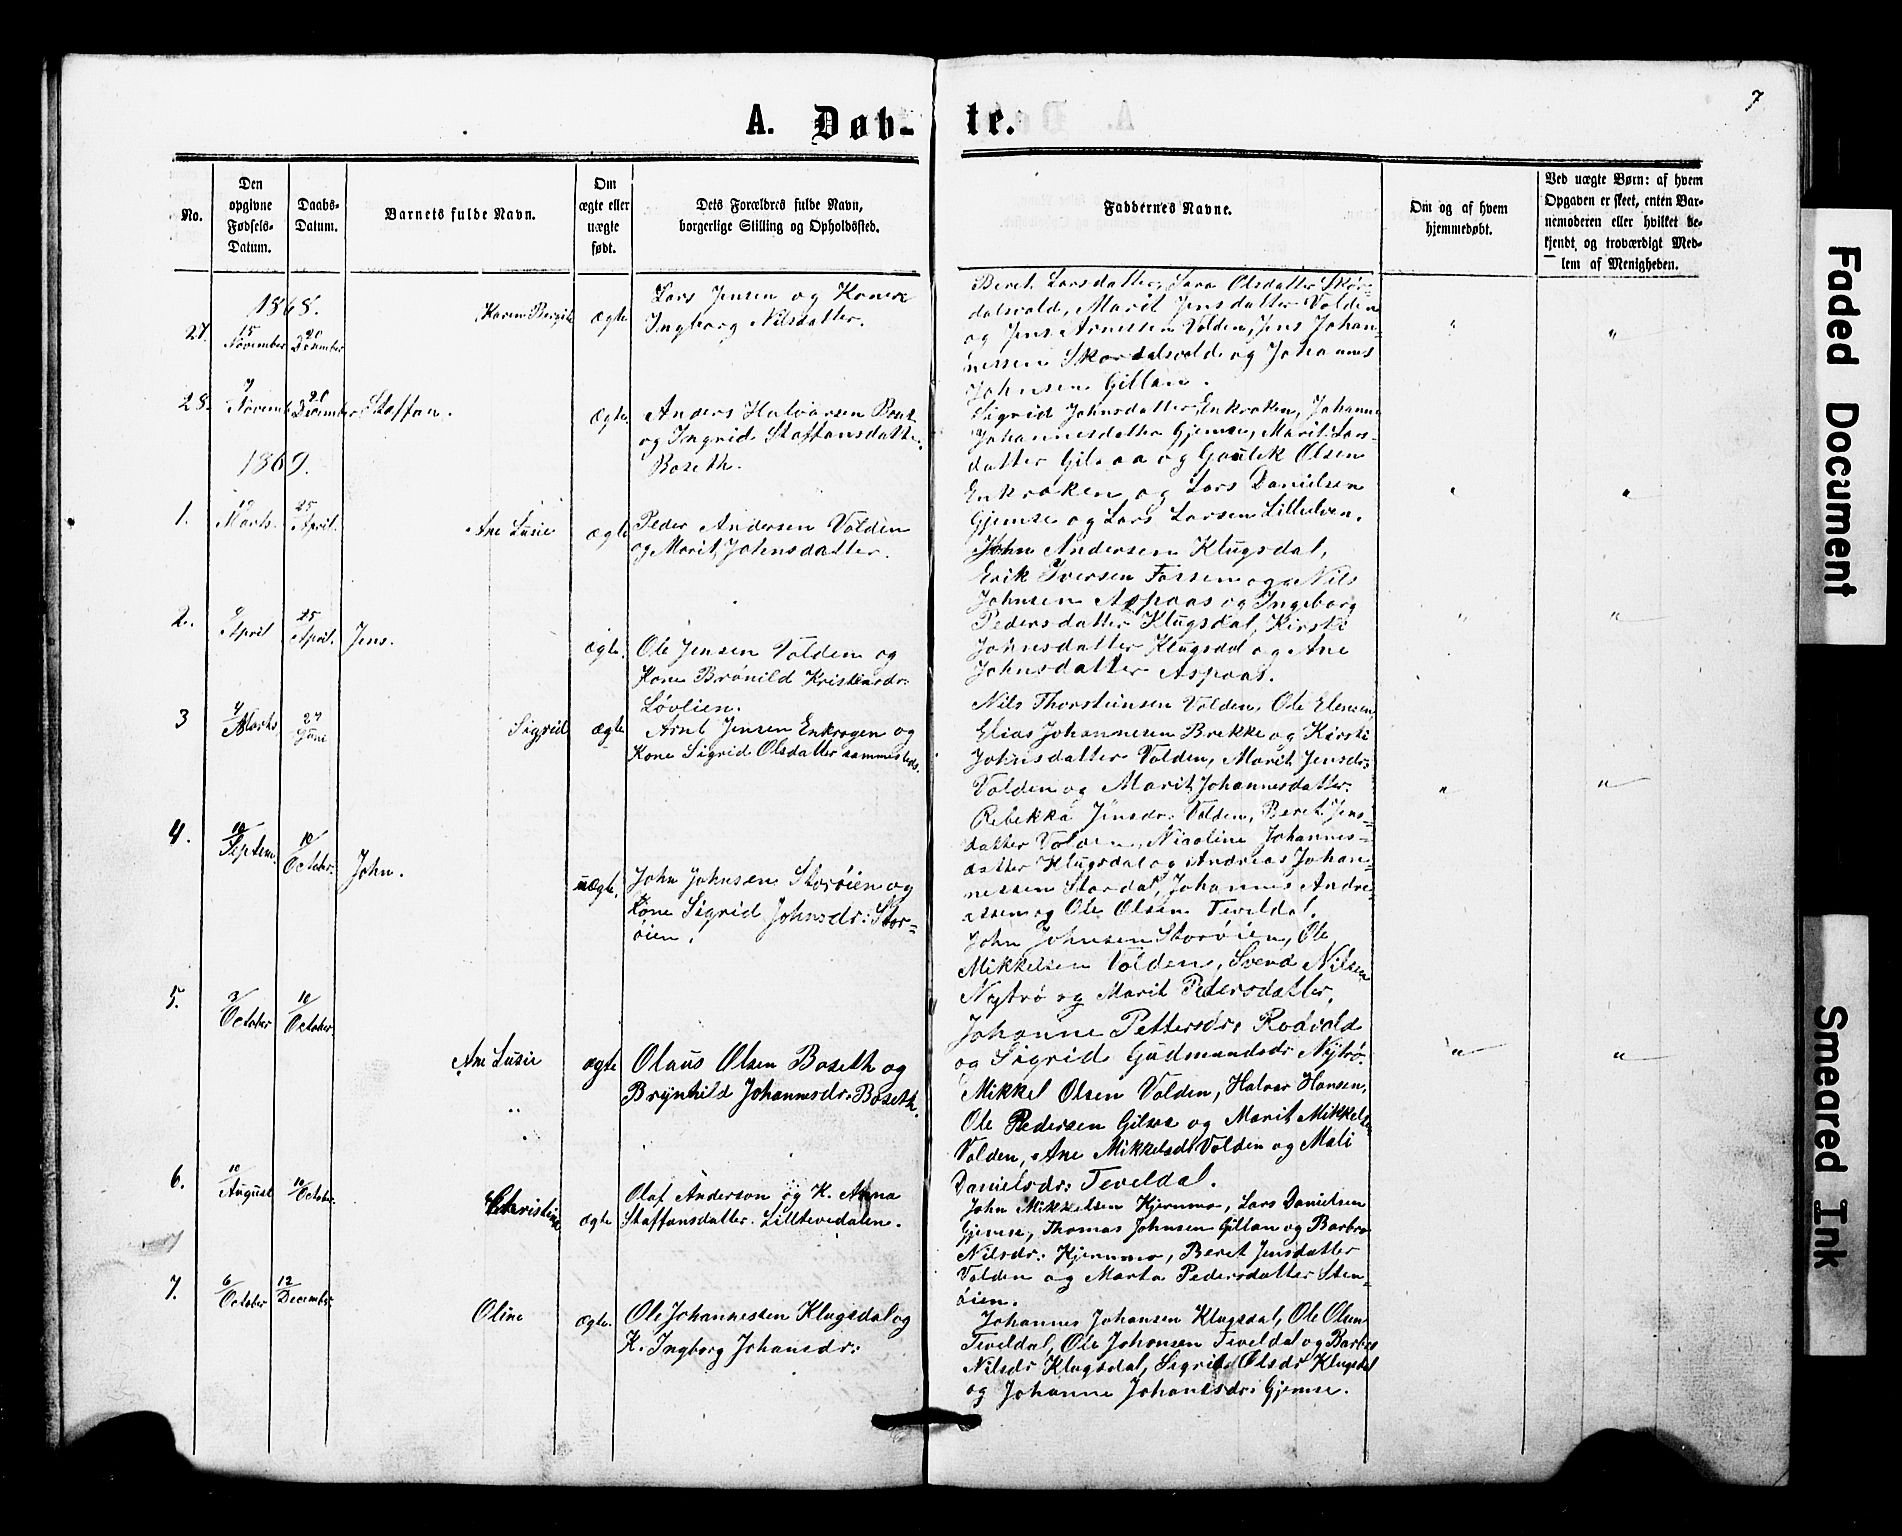 7
A. Døb- te.
No.
Den opgivne Fødsels-Datum.
Daabs-Datum.
Barnets fulde Navn.
Om ægte eller uægte født.
Dets Forældres fulde Navn, borgerlige Stilling og Opholdssted.
Faddernes Navne.
Om og af hvem hjemmedøbt.
Ved uægte Børn: af hvem Opgaven er skeet, enten Barnemoderen eller hvilket bekjendt og troværdigt Medlem af Menigheden.
1868.
27. 15/November 20/December Karen Bergite ægte
Lars Jensen og Kone
Ingborg Nilsdatter.
Beret Larsdatter, Sara Olsdatter Skor-
dalsvold, Marit Jensdatter Volden
og Jens Arnessen Volden, Jens Johan-
nessen Skordalsvold og Johannes
Johnsen Gillan.
" "
28. 7/Novemb December Staffan. ægte
Anders Halvarsen
og Ingrid Staffansdatter
Boseth.
Sigrid Johnsdatter Enkroken, Johanne
Johannesdatter Gjemse, Marit Lars-
datter Gilsaa og Gaulek Olsen
Enkroken og Lars Danielsen
Gjemse og Lars Larsen Lilledven.
" "
1869.
1. Marts. 25/April. Ane Lusie ægte
Peder Andersen Volden
og Marit Johnsdatter.
John Andersen Klugsdal,
Erik Iversen Fossem og Nils
Johnsen Aspaas og Ingeborg
Pedersdatter Klugsdal, Kirsti
Johnsdatter Klugsdal og Ane
Johnsdatter Aspaas.
" "
2. April 25/April. Jens. ægte.
Ole Jensen Volden og
Kone Brønild Kristensdr:
Løvlien.
Nils Thorsteinsen Volden, Ole Elensen,
Elias Johannesen Brekke og Kirsti
Johnsdatter Volden, Marit Jensdr:
Volden og Marit Johannesdatter.
" "
3 Marts 27/Juni Sigrid ægte
Arnt Jensen Enkrogen og
Kone Sigrid Olsdatter sammesteds.
Rebekka Jensdr: Volden, Beret Jens-
datter Volden, Nicoline Johannes-
datter Klugsdal og Andreas Johan-
nessen Stordal, Johannes Andre-
assen og Ole Olsen Teveldal.
4. 10/Septem. 10/October. John. uægte.
John Johnsen Storøien og
Kone Sigrid Johnsdr: Stor-
øien.
John Johnsen Storøien, Ole
Mikkelsen Volden, Svend Nilsen
Nytrø og Marit Petersdatter,
Johanne Pettersdr: Rodvold
og Sigrid Gudmundsdr Nytrø.
" "
5. 3/October 10/October. Ane Lusie ægte
Olaus Olsen Boseth og
Brynhild Johannesdr: Boseth.
Mikkel Olsen Volden, Halvar Hansen,
Ole Pedersen Gilsaa og Marit Mikkelsdr
Volden, Ane Mikkelsdr Volden og Mali
Danielsdr: Teveldal.
6. 10/August 10/October. Christine ægte
Olaf Anderson og K. Anna
Staffansdatter. Lilltevedalen.
John Mikkelsen Kjernmo, Lars Danielsen
Gjemse, Thomas Johnsen Gillan og Barbro
Nilsdr: Kjernmo, Beret Jensdatter
Volden og Marta Pedersdatter Sten-
øien.
7. 6/October 12/December: Oline ægte.
Ole Johannessen Klugsdal og
K. Ingborg Johansdr:
Johannes Johansen Klugsdal, Ole Olsen
Teveldal, Ole Johansen Teveldal og Barbro
Nilsdr Klugsdal, Sigrid Olsdr Klugsdal
og Johanne Johannesdr: Gjemse.
Faded Document
Smeared Ink